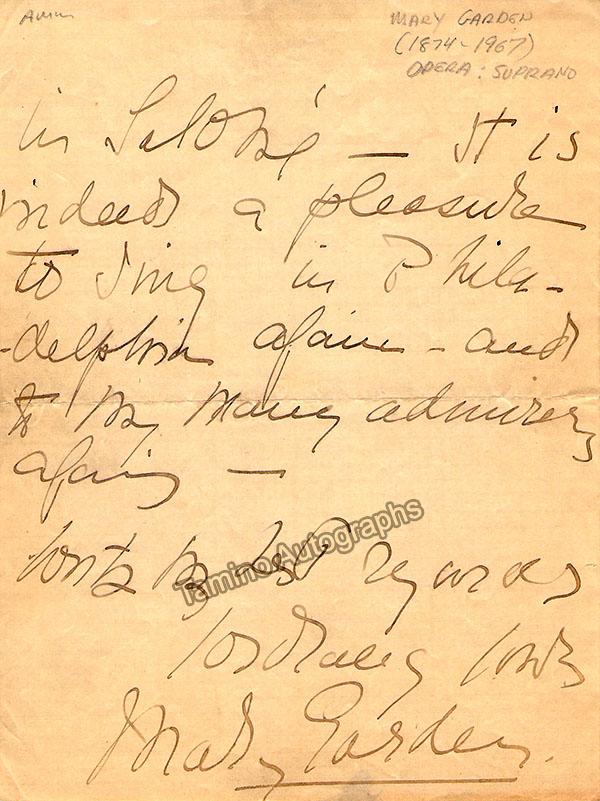 MARY GARDEN
(1874-1967)
OPERA: SUPRANO
in Salomé — It is
indeed a pleasure
to sing in Phila-
-delphia again - and
to my many admirers
again —
With my best regards
Cordially yours
Mary Garden.
Tamino Autographs